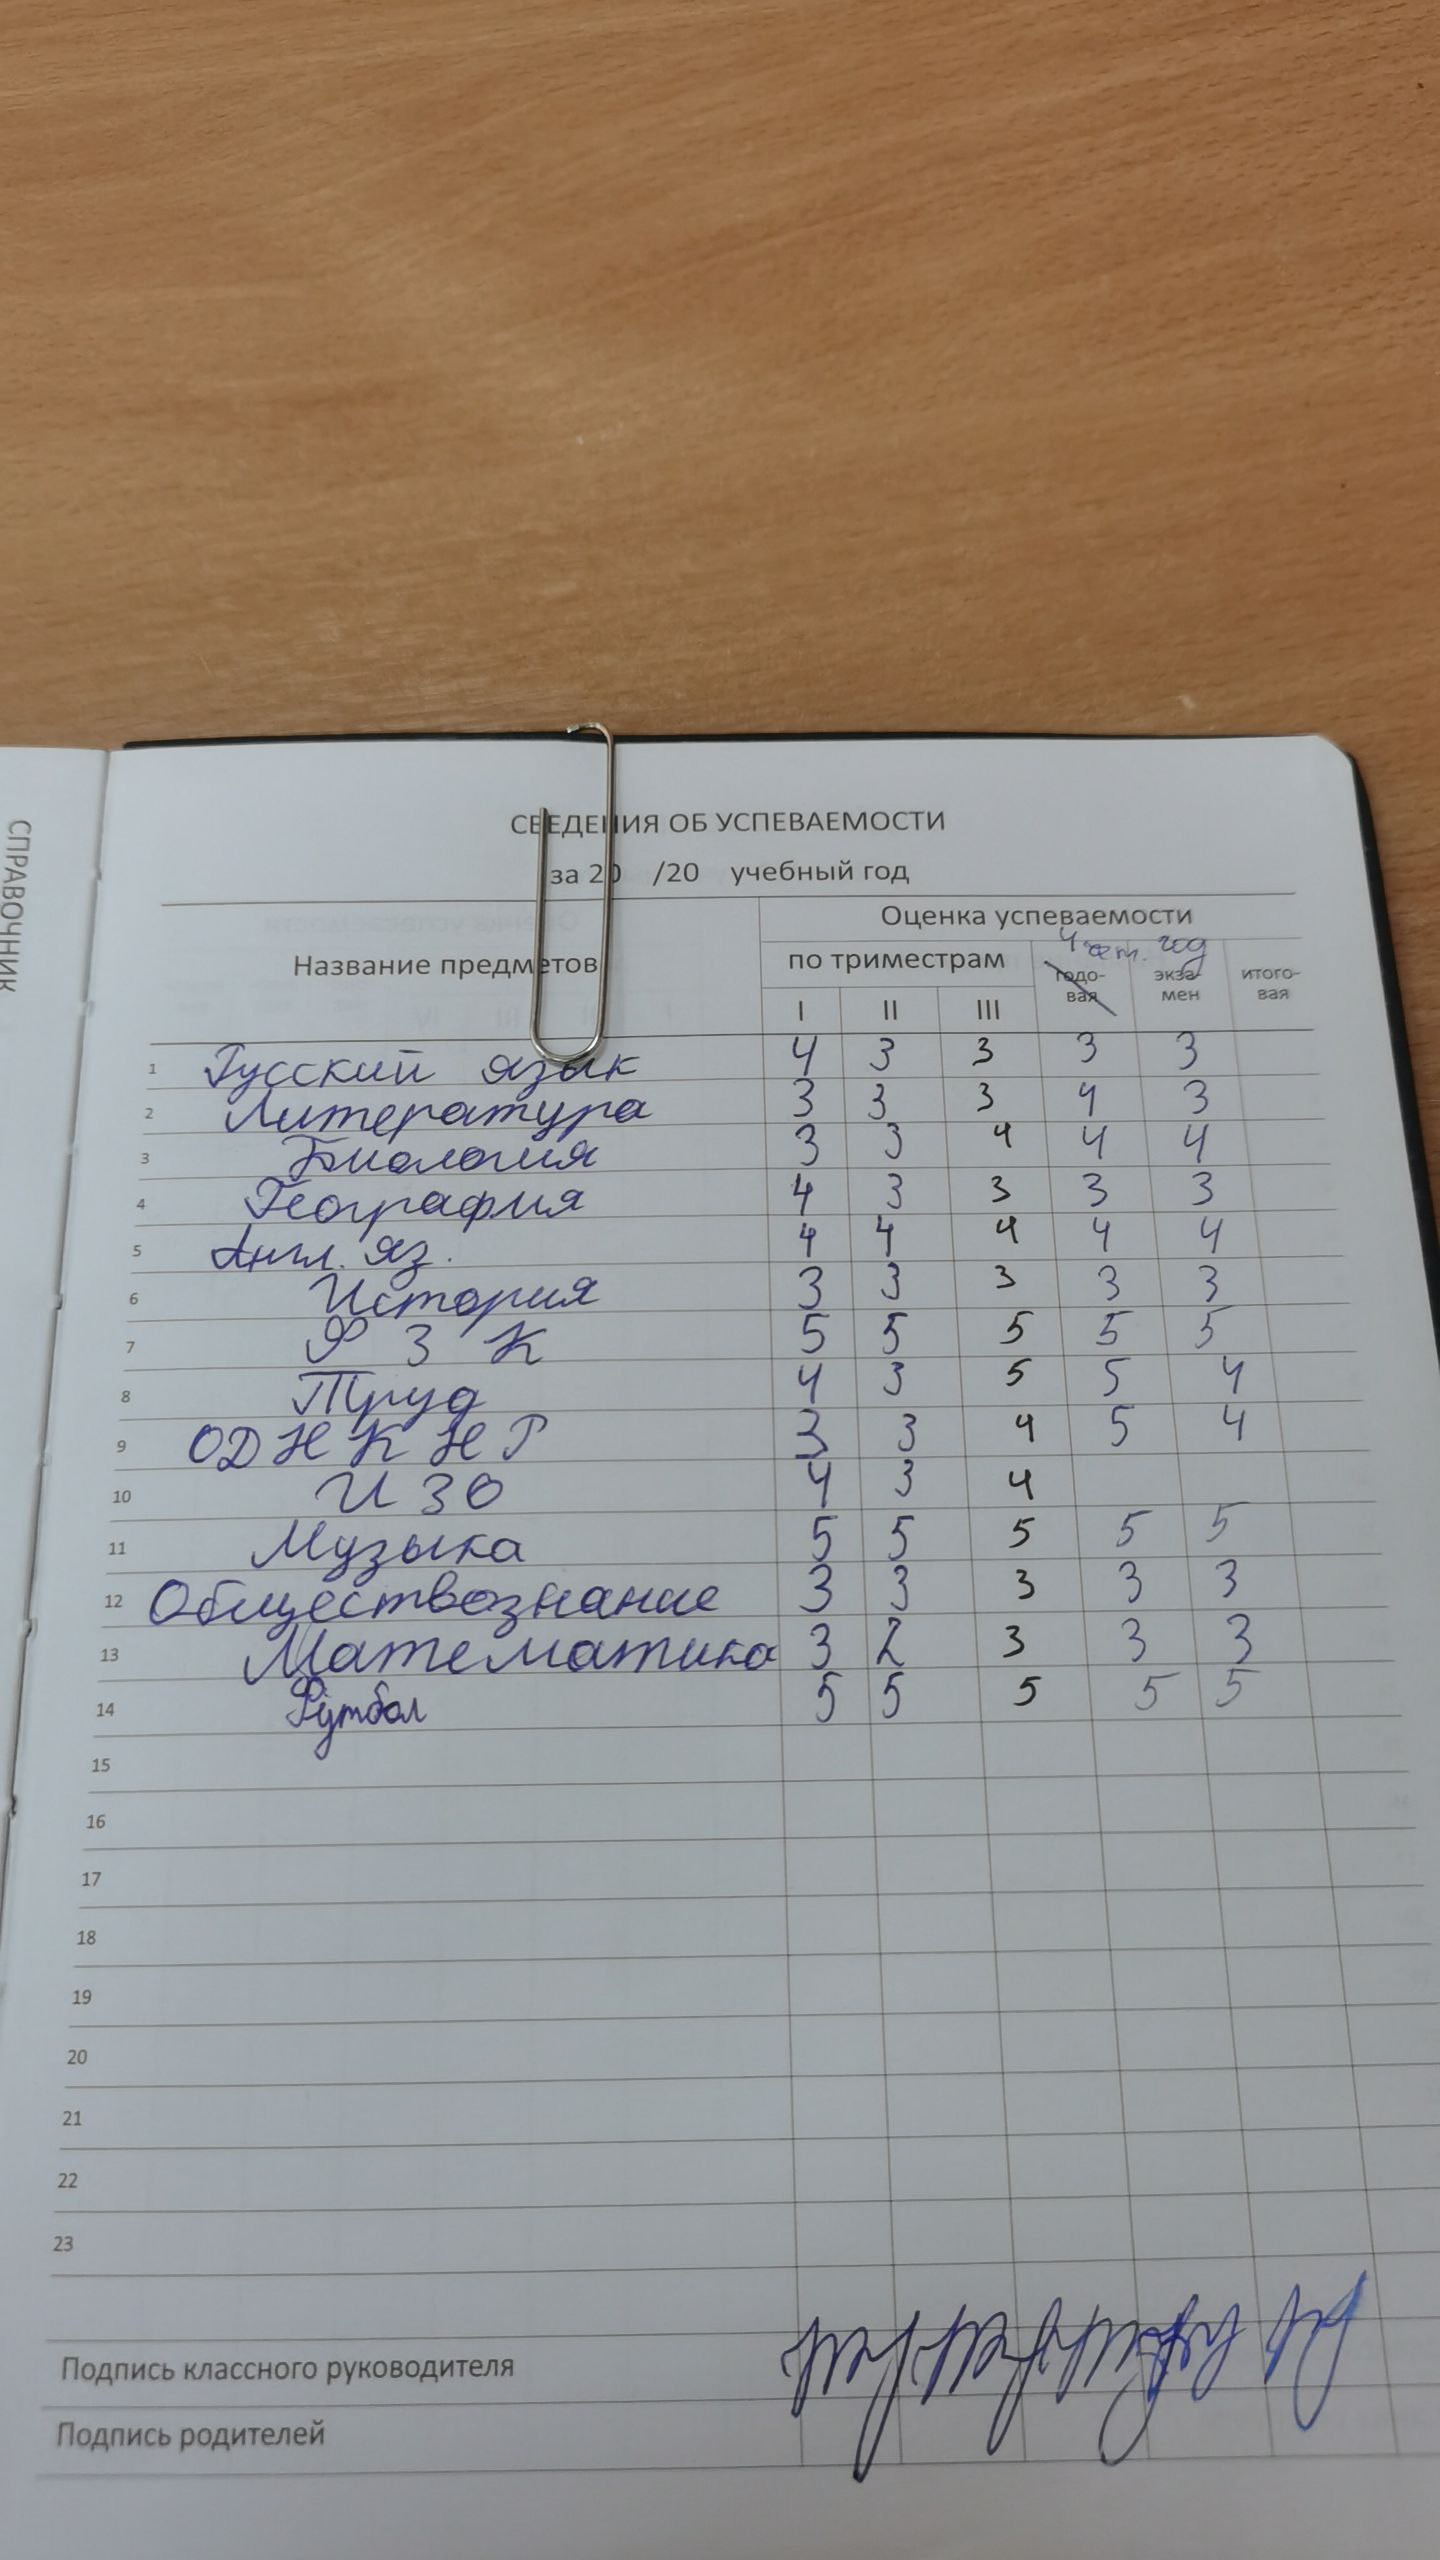 СПРАВОЧНИК
СВЕДЕНИЯ ОБ УСПЕВАЕМОСТИ
за 20 /20 учебный год
Название предметов
Оценка успеваемости
по триместрам
I II III
4 чет. год
годо-вая
экза-мен
итого-вая
1 Русский язык 4 3 3 3 3
2 Литература 3 3 3 4 3
3 Биология 3 3 4 4 4
4 География 4 3 3 3 3
5 Англ. яз. 4 4 4 4 4
6 История 3 3 3 3 3
7 Ф З К 5 5 5 5 5
8 Труд 4 3 5 5 4
9 ОДНКНР 3 3 4 5 4
10 ИЗО 4 3 4
11 Музыка 5 5 5 5 5
12 Обществознание 3 3 3 3 3
13 Математика 3 2 3 3 3
14 Футбол 5 5 5 5 5
15
16
17
18
19
20
21
22
23
Подпись классного руководителя
Подпись родителей